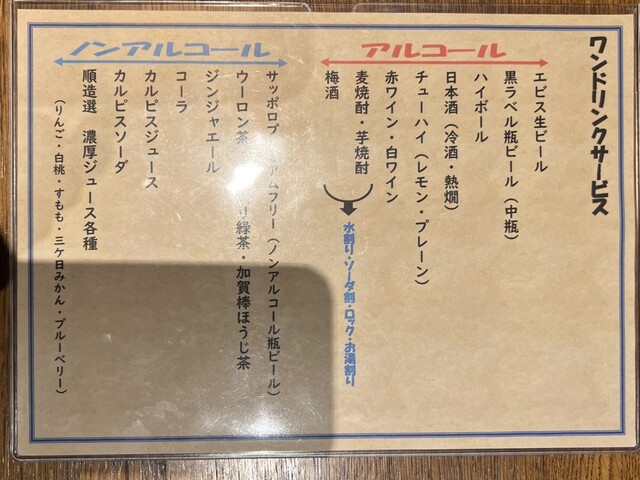 ワンドリンクサービス
アルコール
エビス生ビール
黒ラベル瓶ビール（中瓶）
ハイボール
日本酒（冷酒・熱燗）
チューハイ（レモン・プレーン）
赤ワイン・白ワイン
麦焼酎・芋焼酎
梅酒
水割り・ソーダ割・ロック・お湯割り
ノンアルコール
サッポロプ アムフリー（ノンアルコール瓶ビール）
ウーロン茶 り緑茶・加賀棒ほうじ茶
ジンジャエール
コーラ
カルピスジュース
カルピスソーダ
順造選 濃厚ジュース各種
（りんご・白桃・すもも・三ケ日みかん・ブルーベリー）